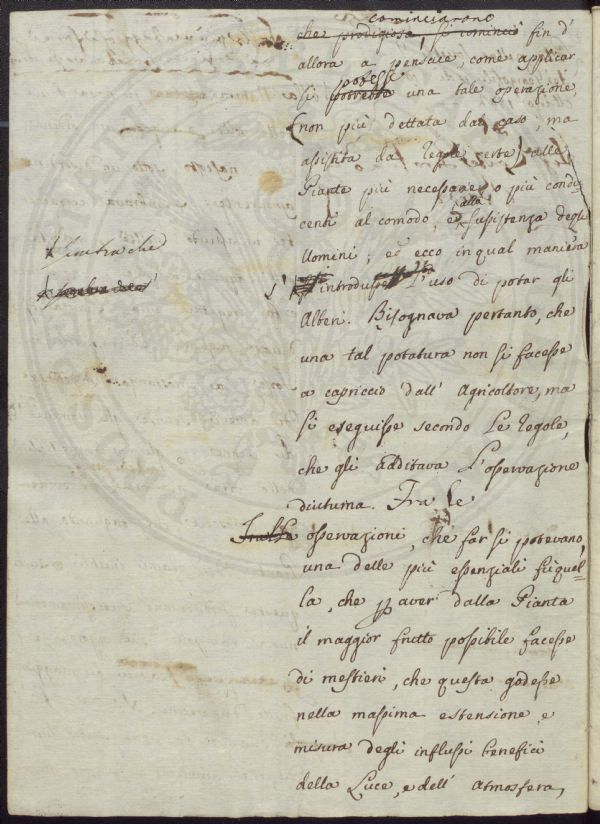 cominciarono
che prodigiosa, si cominciò fin d'
allora a pensare, come applicar
potesse
si potrebbe una tale operazione,
(non più dettata dal caso, ma
assistita da regole certe) alle
Piante più necessarie o più condu
alla
centi al comodo, e sussistenza degli
Uomini; ed ecco in qual maniera
x sembra che
x sembra che
s' introdusse l'uso di potar gli
Alberi. Bisognava pertanto, che
una tal potatura non si facesse
a capriccio dall' Agricoltore, ma
si eseguisse secondo le regole,
che gli additava l'osservazione
diuturna. Fra le
Tralle osservazioni, che far si potevano,
una delle più essenziali fù quel=
la, che p aver dalla Pianta
il maggior frutto possibile facesse
di mestieri, che questa godesse
nella massima estensione, e
misura degli influssi benefici
della Luce, e dell' Atmosfera,